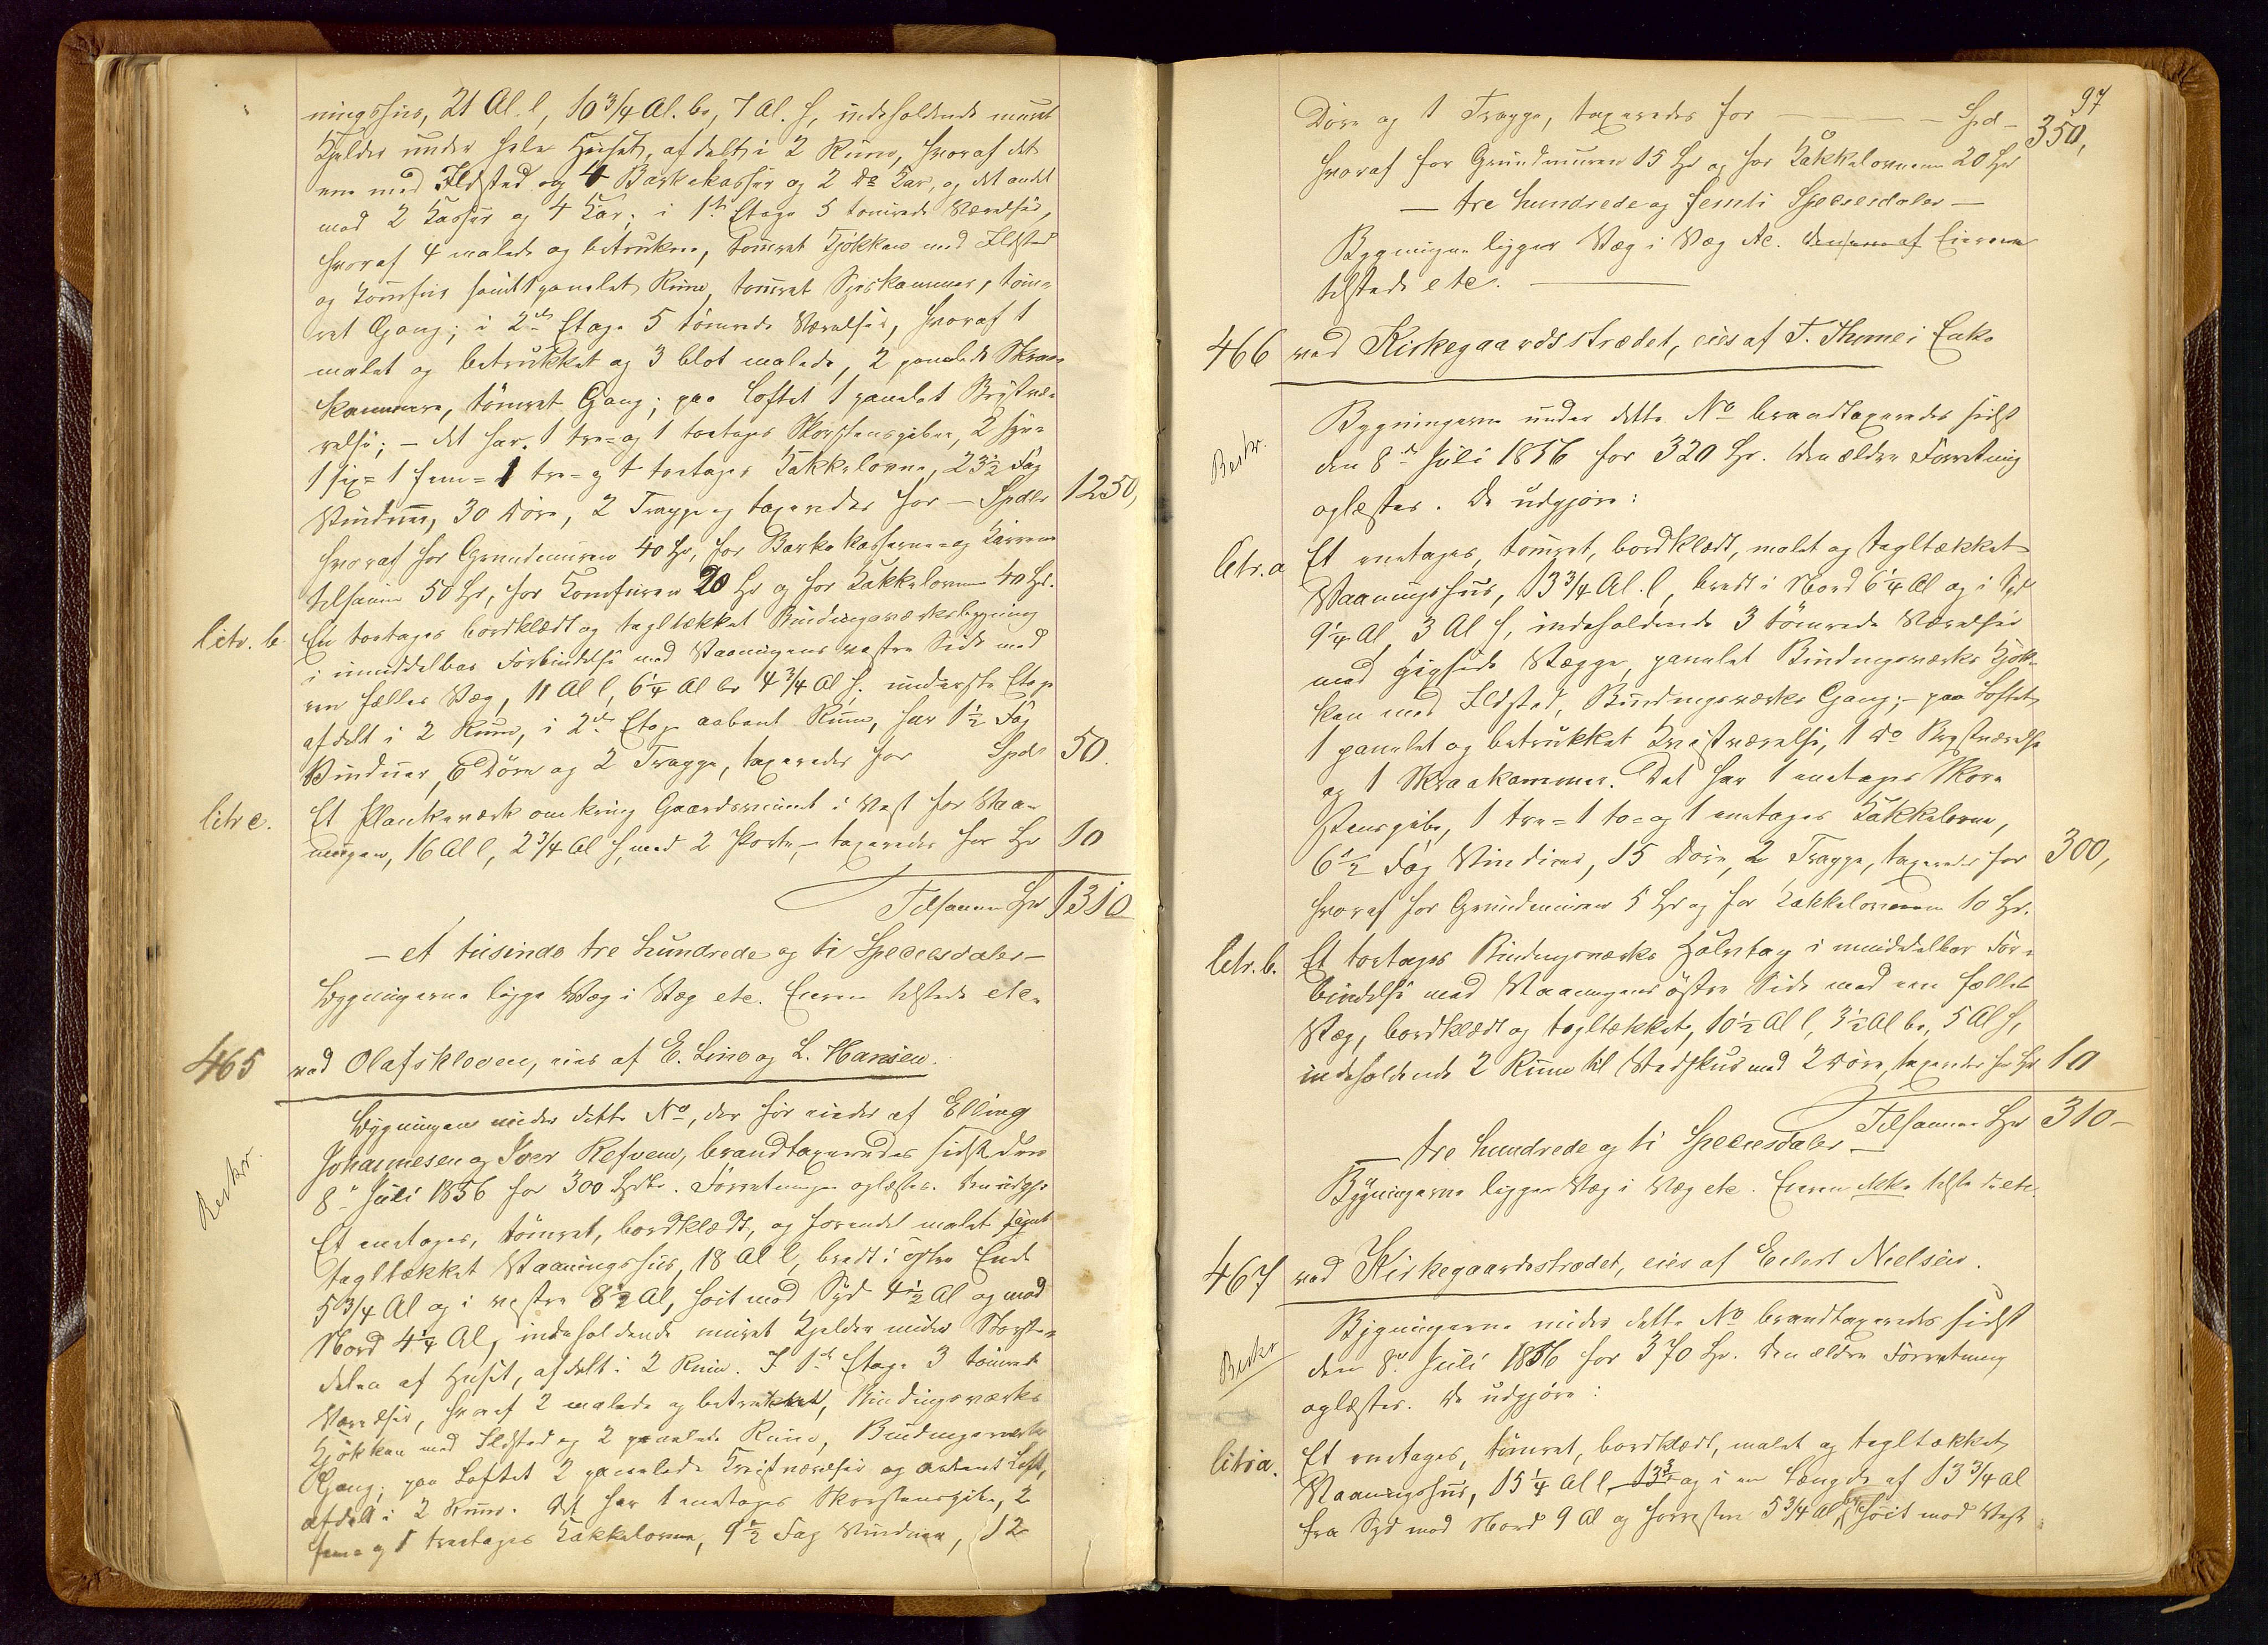 ningshus, 21 Al. l, 10 3/4 Al. br, 7 Al. h, indeholdende muret
Kjelder under hele Huset, afdelt i 2 Rum, hvoraf det
ene med Ildsted og 4 Barkekasser og 2 do Kar, og det andet
med 2 Kasser og 4 Kar; i 1ste Etage 5 tømrede Værelser,
hvoraf 4 malede og betrukne, tømret Kjøkken med Ildsted
og Komfur samt 1 panelet Rum, tømret Spiskammer, tøm-
ret Gang; i 2den Etage 5 tømrede Værelser, hvoraf 1
malet og betrukket og 3 blot malede, 2 panelede Skraa-
kammere, tømret Gang; paa Loftet 1 panelet Kvistvæ-
relse; – det har 1 tre- og 1 toetages Skorstenspiber, 2 syv-
1 six- 1 fem- 1 tre- og 1 toetages Kakkelovne, 23½ Fag
Vinduer, 30 Døre, 2 Trapper taxeredes for – Spdlr 1250,
hvoraf for Grundmuren 40 Spd, for Barkekasserne og Karrene
tilsamen 50 Spd, for Komfuren 20 Spd og for Kakkelovnene 40 Spd.
Litr. b En toetages bordklædt og tagltækket Bindingsværksbygning
i umiddelbar Forbindelse med Vaaningens vestre Side med
een fælles Væg, 11 Al l, 6¼ Al br 4 3/4 Al h. underste Etage
afdelt i 2 Rum, i 2den Etage aabent Rum, har 1½ Fag
Vinduer, 6 Døre og 2 Trapper, taxeredes for Spd 50.
litr c. Et Plankeværk omkring Gaardsrummet i Vest for Vaa-
ningen, 16 Al l, 2 3/4 Al h, med 2 Porte, – taxeredes for Spd 10
Tilsammen Spd 1310
– et tusinde tre hundrede og ti Speciesdaler –
Bygningerne ligge Væg i Væg etc. Eieren tilstede etc.
465 ved Olafskleven, eies af E. Lino og L. Hansen.
Beskr.
Bygningen under dette No, der før eiedes af Elling
Johannesen og Iver Refvem, brandtaxeredes sidst den
8de Juli 1856 for 300 Spdlr. Forretningen oplæstes. Den udgjør
Et enetages, tømret, bordklædt, og forendel malet samt
tagltækket Vaaningshus, 18 Al l, bredt i østre Ende
5 3/4 Al og i vestre 8½ Al, høit mod Syd 4½ Al og mod
Nord 4¼ Al, indeholdende muret Kjelder under Største-
delen af Huset, afdelt i 2 Rum. I 1ste Etage 3 tømrede
Værelser, hvoraf 2 malede og betrukket, Bindingsværks
Kjøkken med Ildsted og 2 panelede Rum, Bindingsværks
Gang; paa Loftet 2 panelede Kvistværelser og aabent Loft,
afdelt i 2 Rum. Det har 1 enetages Skorstenspibe, 2
fem- og 1 treetages Kakkelovne, 9½ Fag Vinduer, 12
97
Døre og 1 Trappe, taxeredes for – – – – Spd – 350,
hvoraf for Grundmuren 15 Spd og for Kakkelovnene 20 Spd
– tre hundrede og femti Speciesdaler –
Bygningen ligger Væg i Væg etc. af Eierne
tilstede etc.
466 ved Kirkegaardsstrædet, eies af T. Thomes Enke
Beskr.
Bygningerne under dette No brandtaxeredes sidst
den 8de Juli 1856 for 320 Spd. Den ældre Forretning
oplæstes. De udgjøre:
Litr. a Et enetages, tømret, bordklædt, malet og tagltækket
Vaaningshus, 13 3/4 Al. l, bredt i Nord 6¼ Al og i Syd
9¼ Al, 3 Al h, indeholdende 3 tømrede Værelser
med gipsede Vægge, panelet Bindingsværks Kjøk-
ken med Ildsted, Bindingsværks Gang; – paa Loftet
1 panelet og betrukket Kvistværelse, 1 do Kvistværelse
og 1 Skraakammer. Det har 1 enetages Skor-
stenspibe, 1 tre- 1 to- og 1 enetages Kakkelovn,
6½ Fag Vinduer, 15 Døre, 2 Trapper, taxeredes for 300,
hvoraf for Grundmuren 5 Spd og for Kakkelovnene 10 Spd.
Litr. b. Et toetages Bindingsværks Halvtag i umiddelbar For-
bindelse med Vaaningens østre Side med een fælles
Væg, bordklædt og tagltækket, 10½ Al l, 3½ Al br, 5 Al h,
indeholdende 2 Rum til Vedskur med 2 Døre, taxeredes for Spd 10
Tilsammen Spd 310 –
– tre hundrede og ti Speciesdaler –
Bygningerne ligger Væg i Væg etc. Eieren ikke tilstede etc.
467 ved Kirkegaardsstrædet, eies af Eilert Nielsen.
Beskr
Bygningerne under dette No brandtaxeredes sidst
den 8de Juli 1856 for 370 Spd. Den ældre Forretning
oplæstes. De udgjøre:
litr a. Et enetages, tømret, bordklædt, malet og tagltækket
Vaaningshus, 15¼ Al l, 13¾ og i en Længde af 13 3/4 Al
fra Syd mod Nord 9 Al og forresten 5 3/4 Al br, høit mod Vest